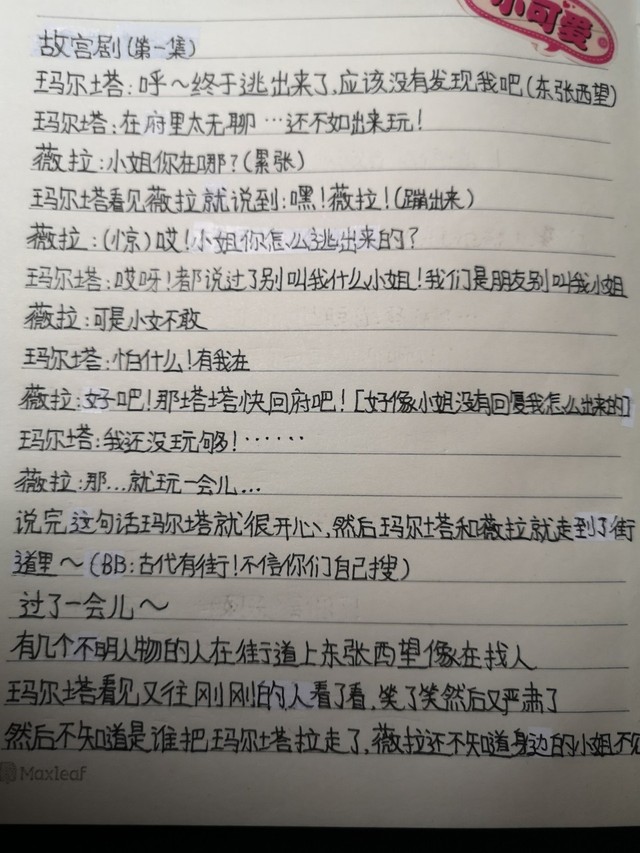 小可爱
故宫剧(第一集)
玛尔塔:呼~终于逃出来了,应该没有发现我吧(东张西望)
玛尔塔:在府里太无聊…还不如出来玩!
薇拉:小姐你在哪?(累张)
玛尔塔看见薇拉就说到:嘿!薇拉!(蹦出来)
薇拉:(惊)哎!小姐你怎么逃出来的?
玛尔塔:哎呀!都说过了别叫我什么小姐!我们是朋友别叫我小姐
薇拉:可是小女不敢
玛尔塔:怕什么!有我在
薇拉:好吧!那塔塔快回府吧![好像小姐没有回复我怎么出来的]
玛尔塔:我还没玩够!……
薇拉:那...就玩一会儿...
说完这句话玛尔塔就很开心,然后玛尔塔和薇拉就走到了街
道里~(BB:古代有街!不信你们自己搜)
过了一会儿~
有几个不明人物的人在街道上东张西望像在找人
玛尔塔看见又往刚刚的人看了看,笑了笑然后又严肃了
然后不知道是谁把玛尔塔拉走了,薇拉还不知道身边的小姐不见
Maxleaf